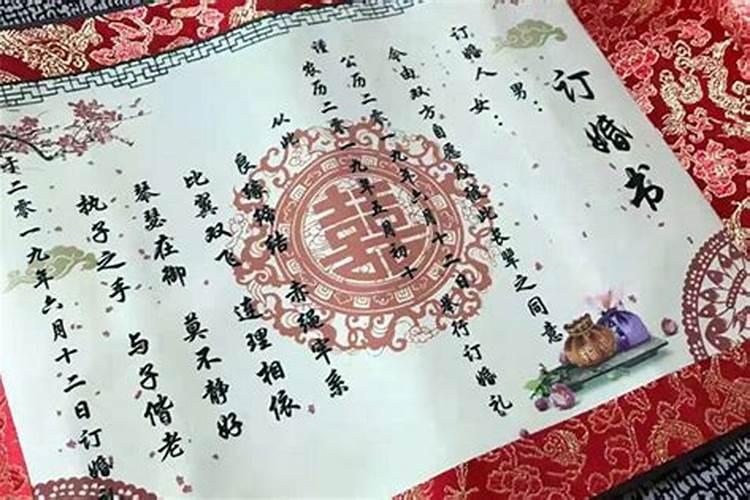 订婚书
订婚人
男：
女：
今由双方自愿及彼此长辈之同意
公历二零一九年六月十二日举行订婚礼
谨
农历二零一九年五月初十
从此
良缘缔结 赤绳牢系
比翼双飞 连理相依
琴瑟在御 莫不静好
执子之手 与子偕老
于二零一九年六月十二日订婚